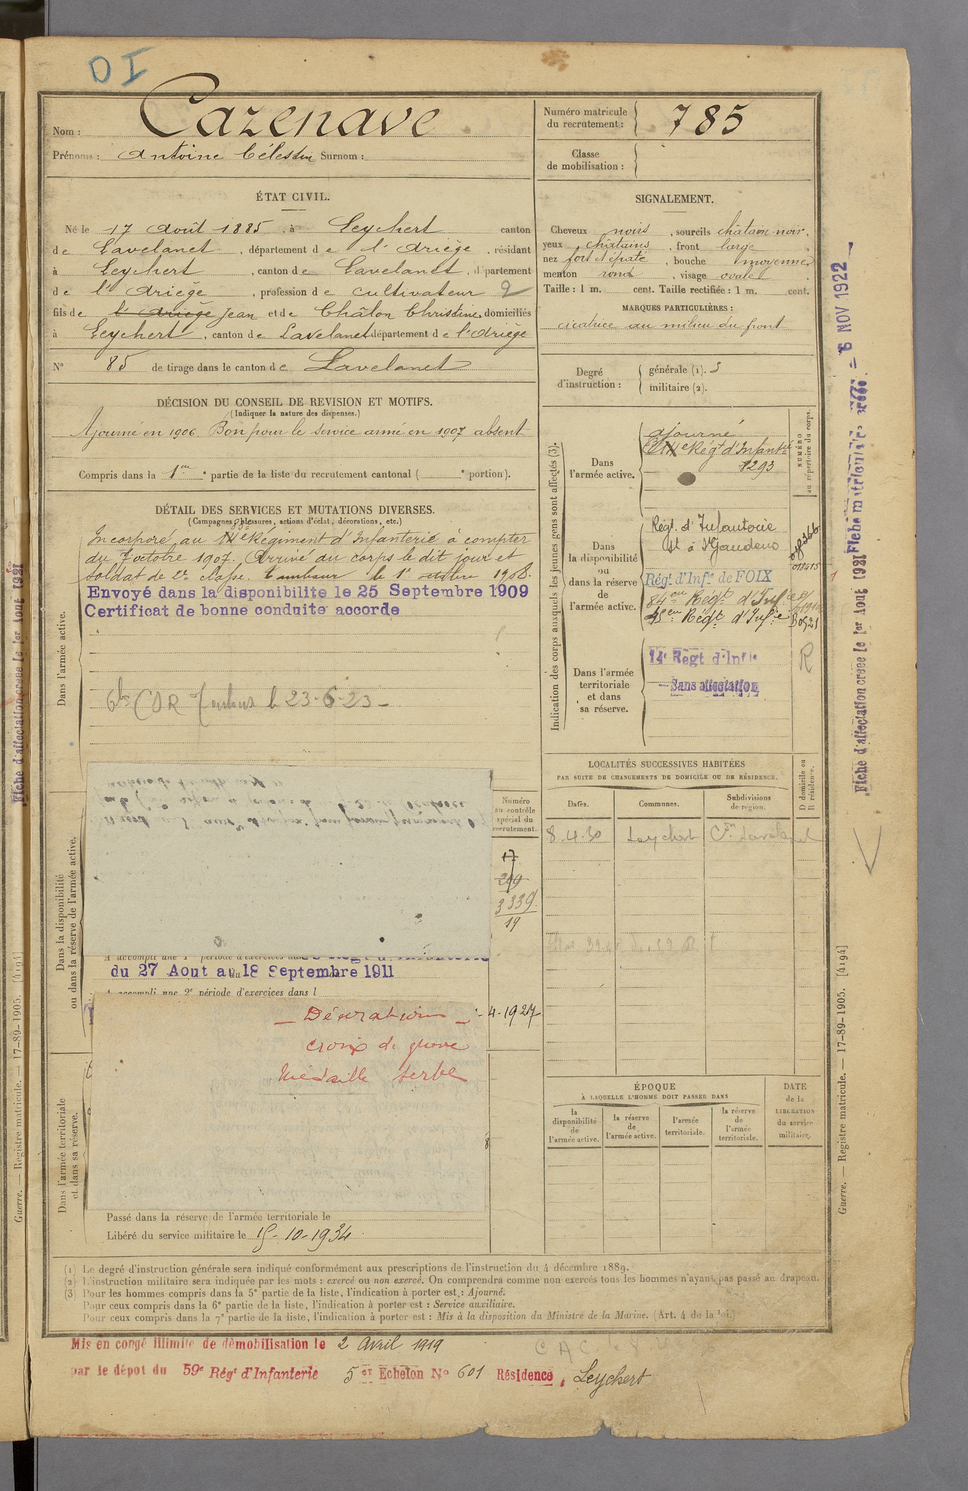 OI
Nom : Cazenave
Prénoms : Antoine Célestin Surnom :
Numéro matricule
du recrutement : 785
Classe
de mobilisation :
ÉTAT CIVIL.
Né le 17 Août 1885, à Leychert canton
de Lavelanet, département de l'Ariège, résidant
à Leychert, canton de Lavelanet, département
de l'Ariège, profession de cultivateur 2
fils de l'Ariège Jean et de Chalon Christine, domiciliés
à Leychert, canton de Lavelanet département de l'Ariège
N° 85 de tirage dans le canton de Lavelanet
SIGNALEMENT.
Cheveux noirs, sourcils châtain-noir,
yeux châtains, front large
nez fort épaté, bouche moyenne,
menton rond, visage ovale
Taille : 1 m. cent. Taille rectifiée : 1 m. cent.
MARQUES PARTICULIÈRES :
cicatrice au milieu du front
Degré
d'instruction :
générale (1). 3
militaire (2).
DÉCISION DU CONSEIL DE REVISION ET MOTIFS.
(Indiquer la nature des dispenses.)
Ajourné en 1906. Bon pour le service armé en 1907 absent
Compris dans la 1re partie de la liste du recrutement cantonal ( e portion).
DÉTAIL DES SERVICES ET MUTATIONS DIVERSES.
(Campagnes, blessures, actions d'éclat, décorations, etc.)
Incorporé au Régiment d'Infanterie à compter
du 7 octobre 1907. Arrivé au corps le dit jour et
soldat de 2e classe. tambour le 1er octobre 1908.
Envoyé dans la disponibilite le 25 Septembre 1909
Certificat de bonne conduite accorde
le 23-6-23
Dans l'armée active.
Indication des corps auxquels les jeunes gens sont affectés (3).
NUMÉRO
au répertoire du corps.
Dans
l'armée active.
ajourné
Régt d'Infanterie
1293
Dans
la disponibilité
ou
dans la réserve
de
l'armée active.
Régt d'Infanterie
St Gaudens
Régt d'Infie de FOIX
Régt d'Infie
Régt d'Infie
Dans l'armée
territoriale
et dans
sa réserve.
14e Régt d'Infie
Sans affectation
R
Dans la disponibilité
ou dans la réserve de l'armée active.
Numéro
au contrôle
spécial du
recrutement.
17
299
3339
19
du 27 Aout au 18 Septembre 1911
A accompli une 2e période d'exercices dans l
4-1927
— Décorations —
croix de guerre
Médaille serbe
Dans l'armée territoriale
et dans sa réserve.
Passé dans la réserve de l'armée territoriale le
Libéré du service militaire le 15-10-1934
LOCALITÉS SUCCESSIVES HABITÉES
PAR SUITE DE CHANGEMENTS DE DOMICILE OU DE RÉSIDENCE.
D domicile ou
R résidence.
Dates.
Communes.
Subdivisions
de région.
8.4.30 Leychert
ÉPOQUE
À LAQUELLE L'HOMME DOIT PASSER DANS
la
disponibilité
de
l'armée active.
la réserve
de
l'armée active.
l'armée
territoriale.
la réserve
de
l'armée
territoriale.
DATE
de la
LIBÉRATION
du service
militaire.
(1) Le degré d'instruction générale sera indiqué conformément aux prescriptions de l'instruction du 4 décembre 1889.
(2) L'instruction militaire sera indiquée par les mots : exercé ou non exercé. On comprendra comme non exercés tous les hommes n'ayant pas passé au drapeau.
(3) Pour les hommes compris dans la 5e partie de la liste, l'indication à porter est : Ajourné.
Pour ceux compris dans la 6e partie de la liste, l'indication à porter est : Service auxiliaire.
Pour ceux compris dans la 7e partie de la liste, l'indication à porter est : Mis à la disposition du Ministre de la Marine. (Art. 4 de la loi.)
Mis en congé illimité de démobilisation le 2 Avril 1919
par le dépot du 59e Régt d'Infanterie 5e Echelon N° 601 Résidence, Leychert
Guerre. — Registre matricule. — 17-89-1905. [4194]
Guerre. — Registre matricule. — 17-89-1905. [4194]
Fiche d'affectation créée le 1er Aout 1921
Fiche d'affectation créée le 1er Aout 1921
6 NOV 1922